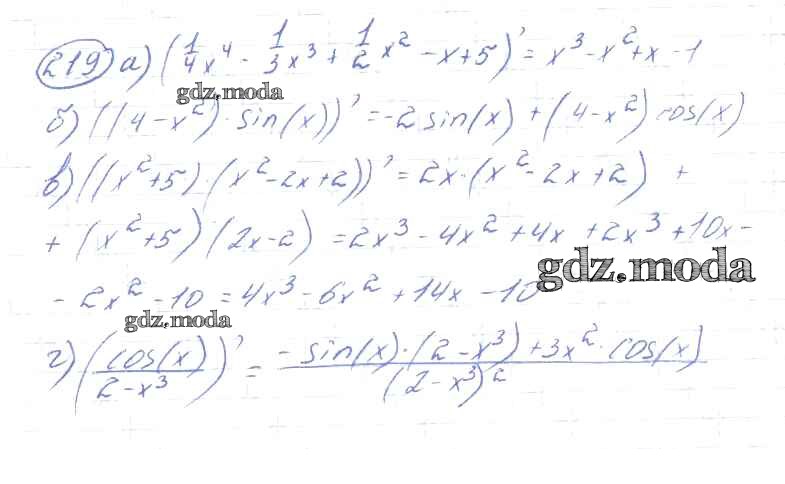 219 а) (1/4 x⁴ - 1/3 x³ + 1/2 x² - x + 5)' = x³ - x² + x - 1
gdz.moda
б) ((4 - x²) · sin(x))' = -2 sin(x) + (4 - x²) cos(x)
в) ((x² + 5) · (x² - 2x + 2))' = 2x · (x² - 2x + 2) +
+ (x² + 5) (2x - 2) = 2x³ - 4x² + 4x + 2x³ + 10x -
gdz.moda
- 2x² - 10 = 4x³ - 6x² + 14x - 10
gdz.moda
г) (cos(x) / (2 - x³))' = (-sin(x) · (2 - x³) + 3x² · cos(x)) / (2 - x³)²